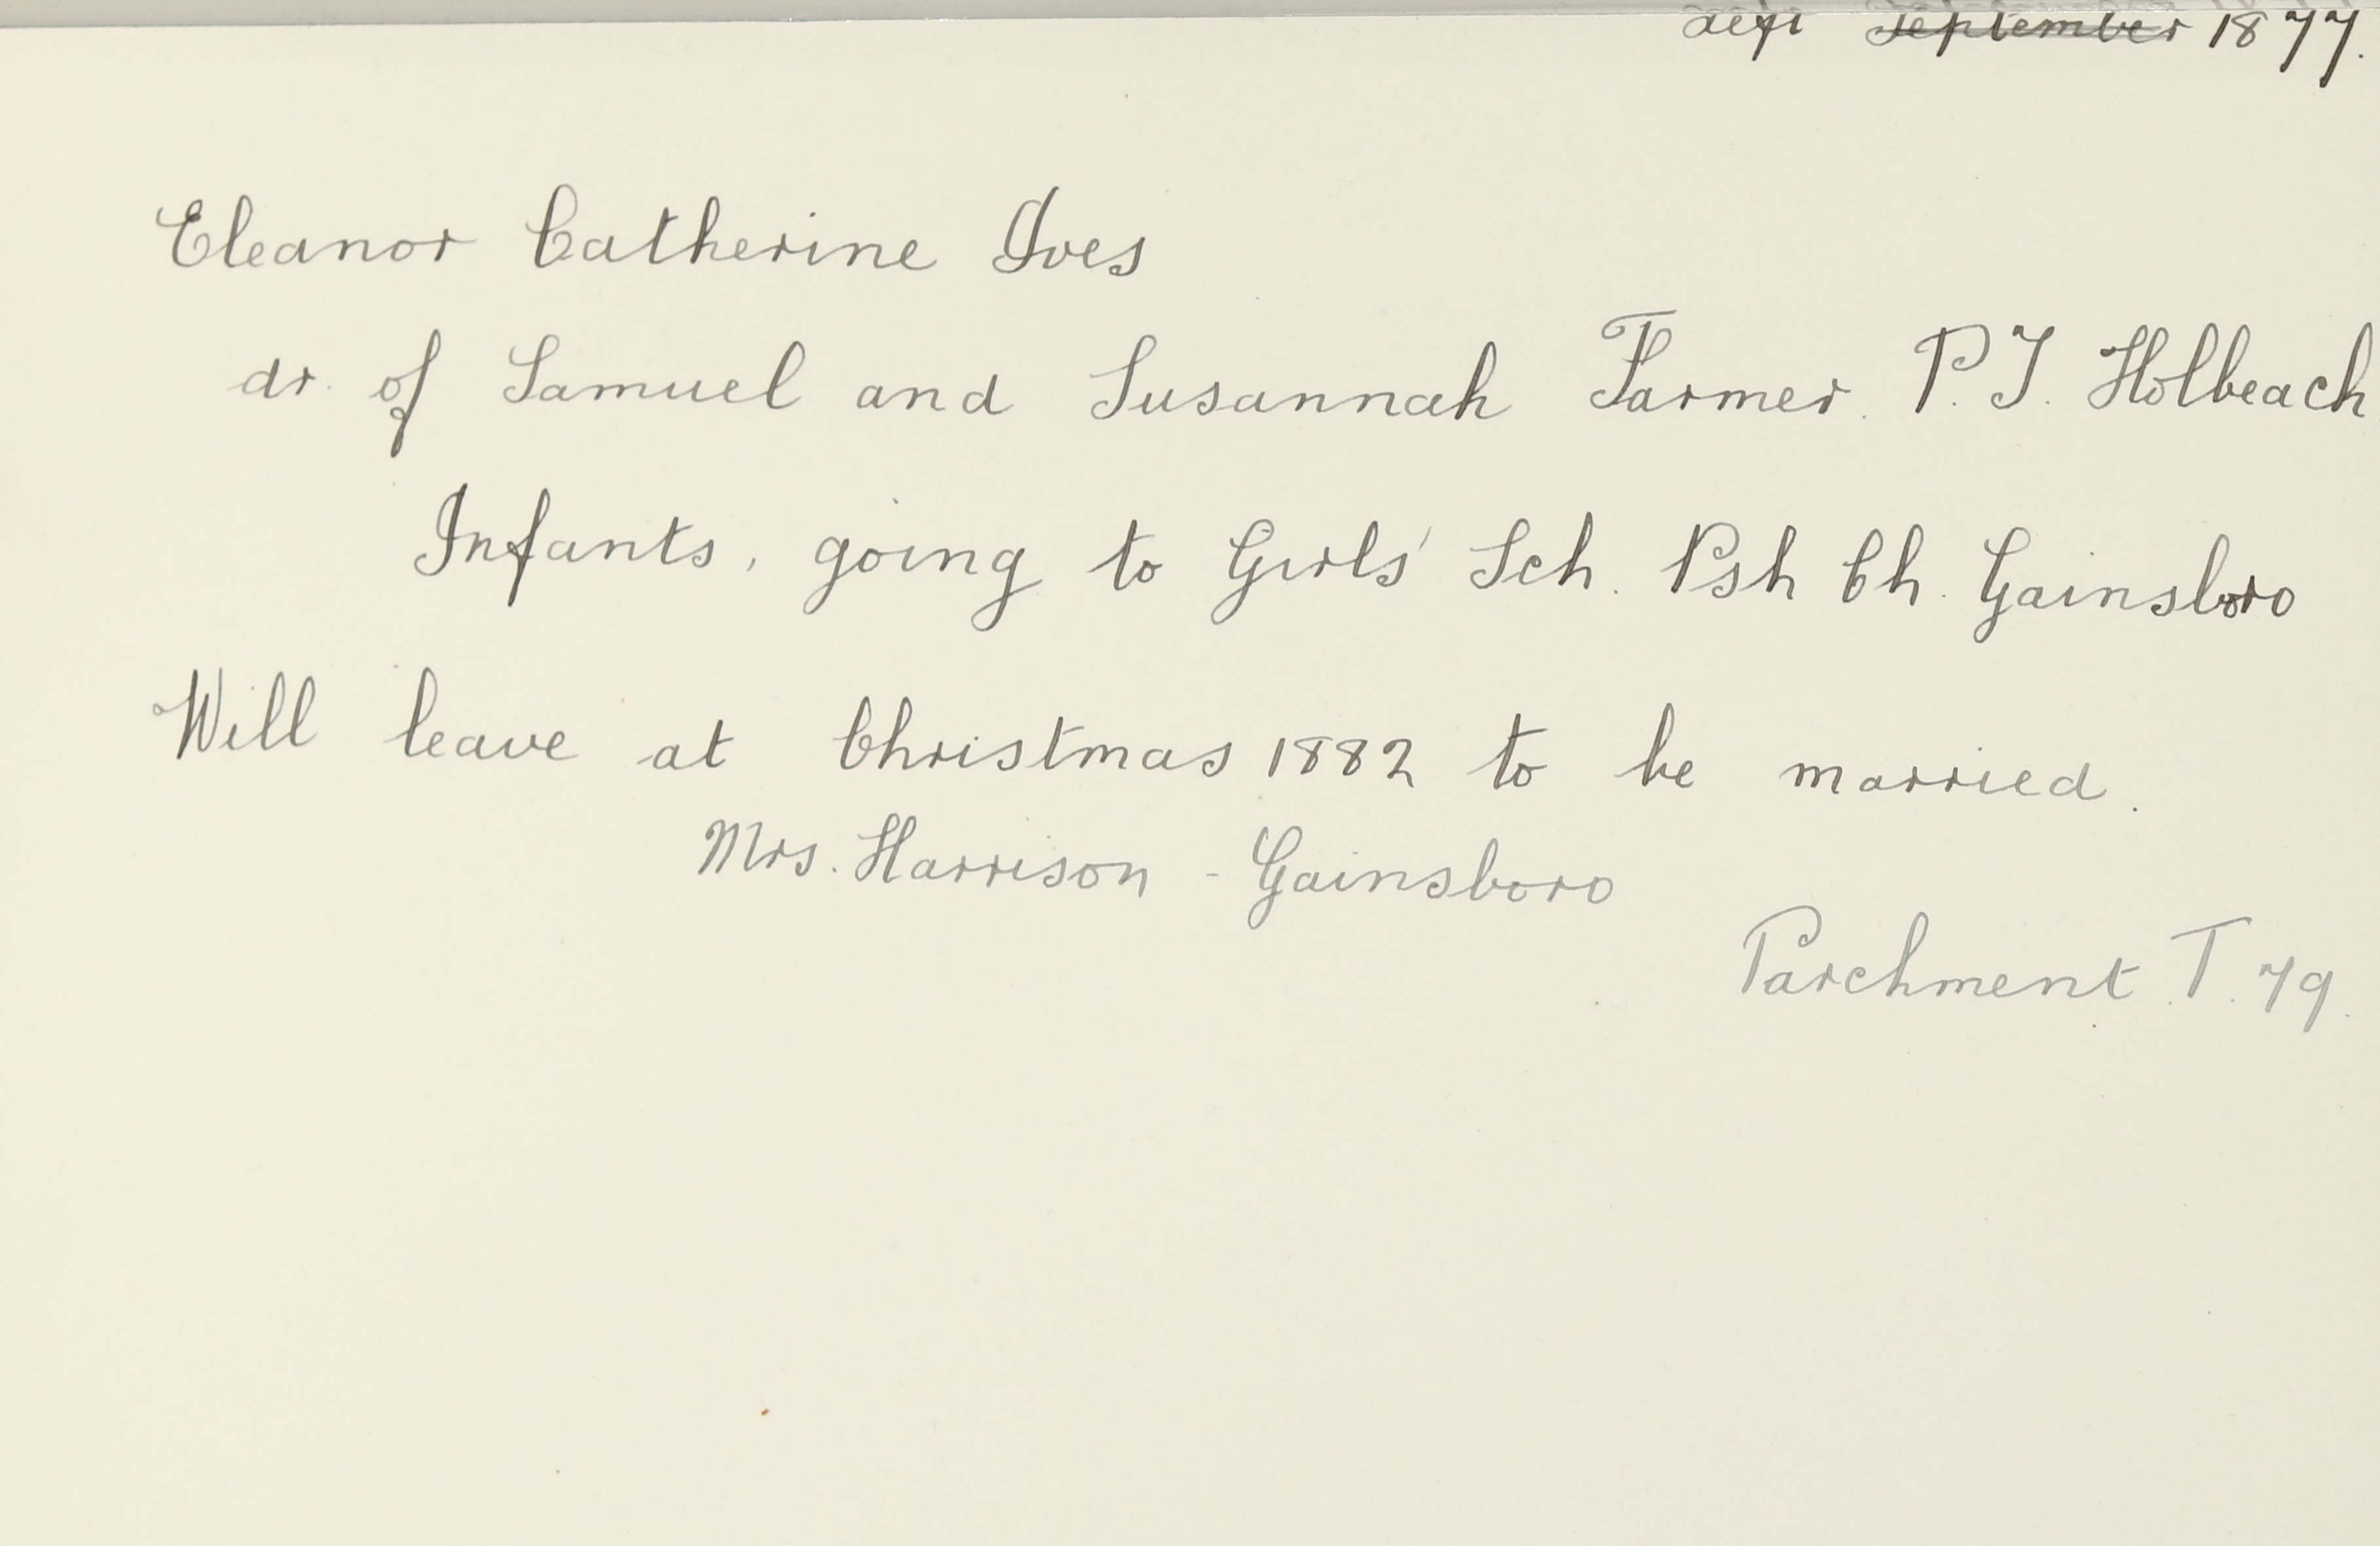 left September 1877.
Eleanor Catherine Ives
dr. of Samuel and Susannah Farmer. P.T. Holbeach
Infants, going to Girls' Sch. Psh Ch. Gainsboro
Will leave at Christmas 1882 to be married.
Mrs. Harrison - Gainsboro
Parchment. T. 79.